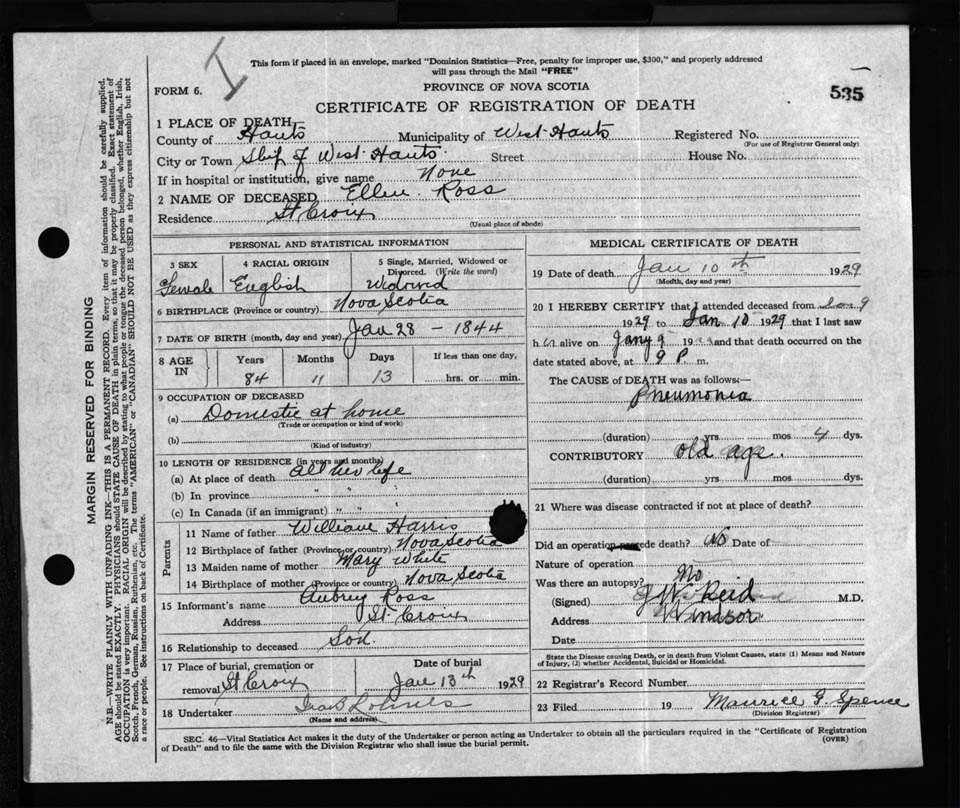 I
This form if placed in an envelope, marked "Dominion Statistics—Free, penalty for improper use, $300," and properly addressed
will pass through the Mail "FREE"
FORM 6.
PROVINCE OF NOVA SCOTIA
535
CERTIFICATE OF REGISTRATION OF DEATH
1 PLACE OF DEATH,
County of Hants Municipality of West Hants Registered No.
(For use of Registrar General only)
City or Town Ship of West Hants Street House No.
If in hospital or institution, give name None
2 NAME OF DECEASED Ellen Ross
Residence St Croix
(Usual place of abode)
PERSONAL AND STATISTICAL INFORMATION
3 SEX 4 RACIAL ORIGIN 5 Single, Married, Widowed or
Divorced. (Write the word)
Female English Widowed
6 BIRTHPLACE (Province or country) Nova Scotia
7 DATE OF BIRTH (month, day and year) Jan 28 - 1844
8 AGE IN Years Months Days If less than one day,
84 11 13 hrs. or min.
9 OCCUPATION OF DECEASED
(a) Domestic at home
(Trade or occupation or kind of work)
(b)
(Kind of industry)
10 LENGTH OF RESIDENCE (in years and months)
(a) At place of death all her life
(b) In province " "
(c) In Canada (if an immigrant) " "
Parents
11 Name of father William Harris
12 Birthplace of father (Province or country) Nova Scotia
13 Maiden name of mother Mary White
14 Birthplace of mother (Province or country) Nova Scotia
15 Informant's name Aubrey Ross
Address St Croix
16 Relationship to deceased Son
17 Place of burial, cremation or Date of burial
removal St Croix Jan 13th 1929
18 Undertaker
(Name and address)
MEDICAL CERTIFICATE OF DEATH
19 Date of death Jan 10th 1929
(Month, day and year)
20 I HEREBY CERTIFY that I attended deceased from Jan 9
1929 to Jan 10 1929 that I last saw
h er alive on Jany 9 19 and that death occurred on the
date stated above, at 9 P m.
The CAUSE of DEATH was as follows:—
Pneumonia
(duration) yrs mos 4 dys.
CONTRIBUTORY old age.
(duration) yrs mos dys.
21 Where was disease contracted if not at place of death?
Did an operation precede death? No Date of
Nature of operation
Was there an autopsy? No
(Signed) J W Reid M.D.
Address Windsor
Date
State the Disease causing Death, or in death from Violent Causes, state (1) Means and Nature
of Injury, (2) whether Accidental, Suicidal or Homicidal.
22 Registrar's Record Number
23 Filed 19 Maurice G. Spence
(Division Registrar)
SEC. 46—Vital Statistics Act makes it the duty of the Undertaker or person acting as Undertaker to obtain all the particulars required in the "Certificate of Registration
of Death" and to file the same with the Division Registrar who shall issue the burial permit. (OVER)
MARGIN RESERVED FOR BINDING
N.B—WRITE PLAINLY WITH UNFADING INK—THIS IS A PERMANENT RECORD. Every item of information should be carefully supplied.
AGE should be stated EXACTLY. PHYSICIANS should STATE CAUSE OF DEATH in plain terms, so that it may be properly classified. Exact statement of
OCCUPATION is very important. RACIAL ORIGIN will be described by stating to what people or tongue the deceased person belonged, whether English, Irish,
Scotch, French, German, Russian, Ruthenian, etc. The terms "AMERICAN" or "CANADIAN" SHOULD NOT BE USED as they express citizenship but not
a race or people. See instructions on back of Certificate.